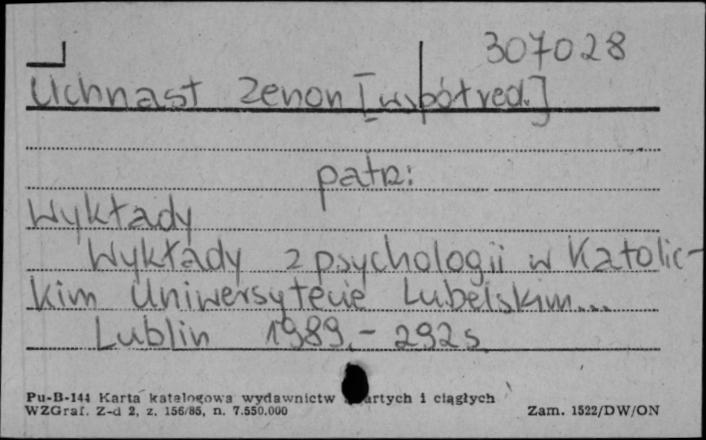 307028
Uchnast Zenon [współred.]
patrz:
Wykłady
Wykłady z psychologii w Katolic-
kim Uniwersytecie Lubelskim...
Lublin 1989.- 292 s.
Pu-B-144 Karta katalogowa wydawnictw zwartych i ciągłych
WZGraf. Z-d 2, z. 156/85, n. 7.550.000 Zam. 1522/DW/ON